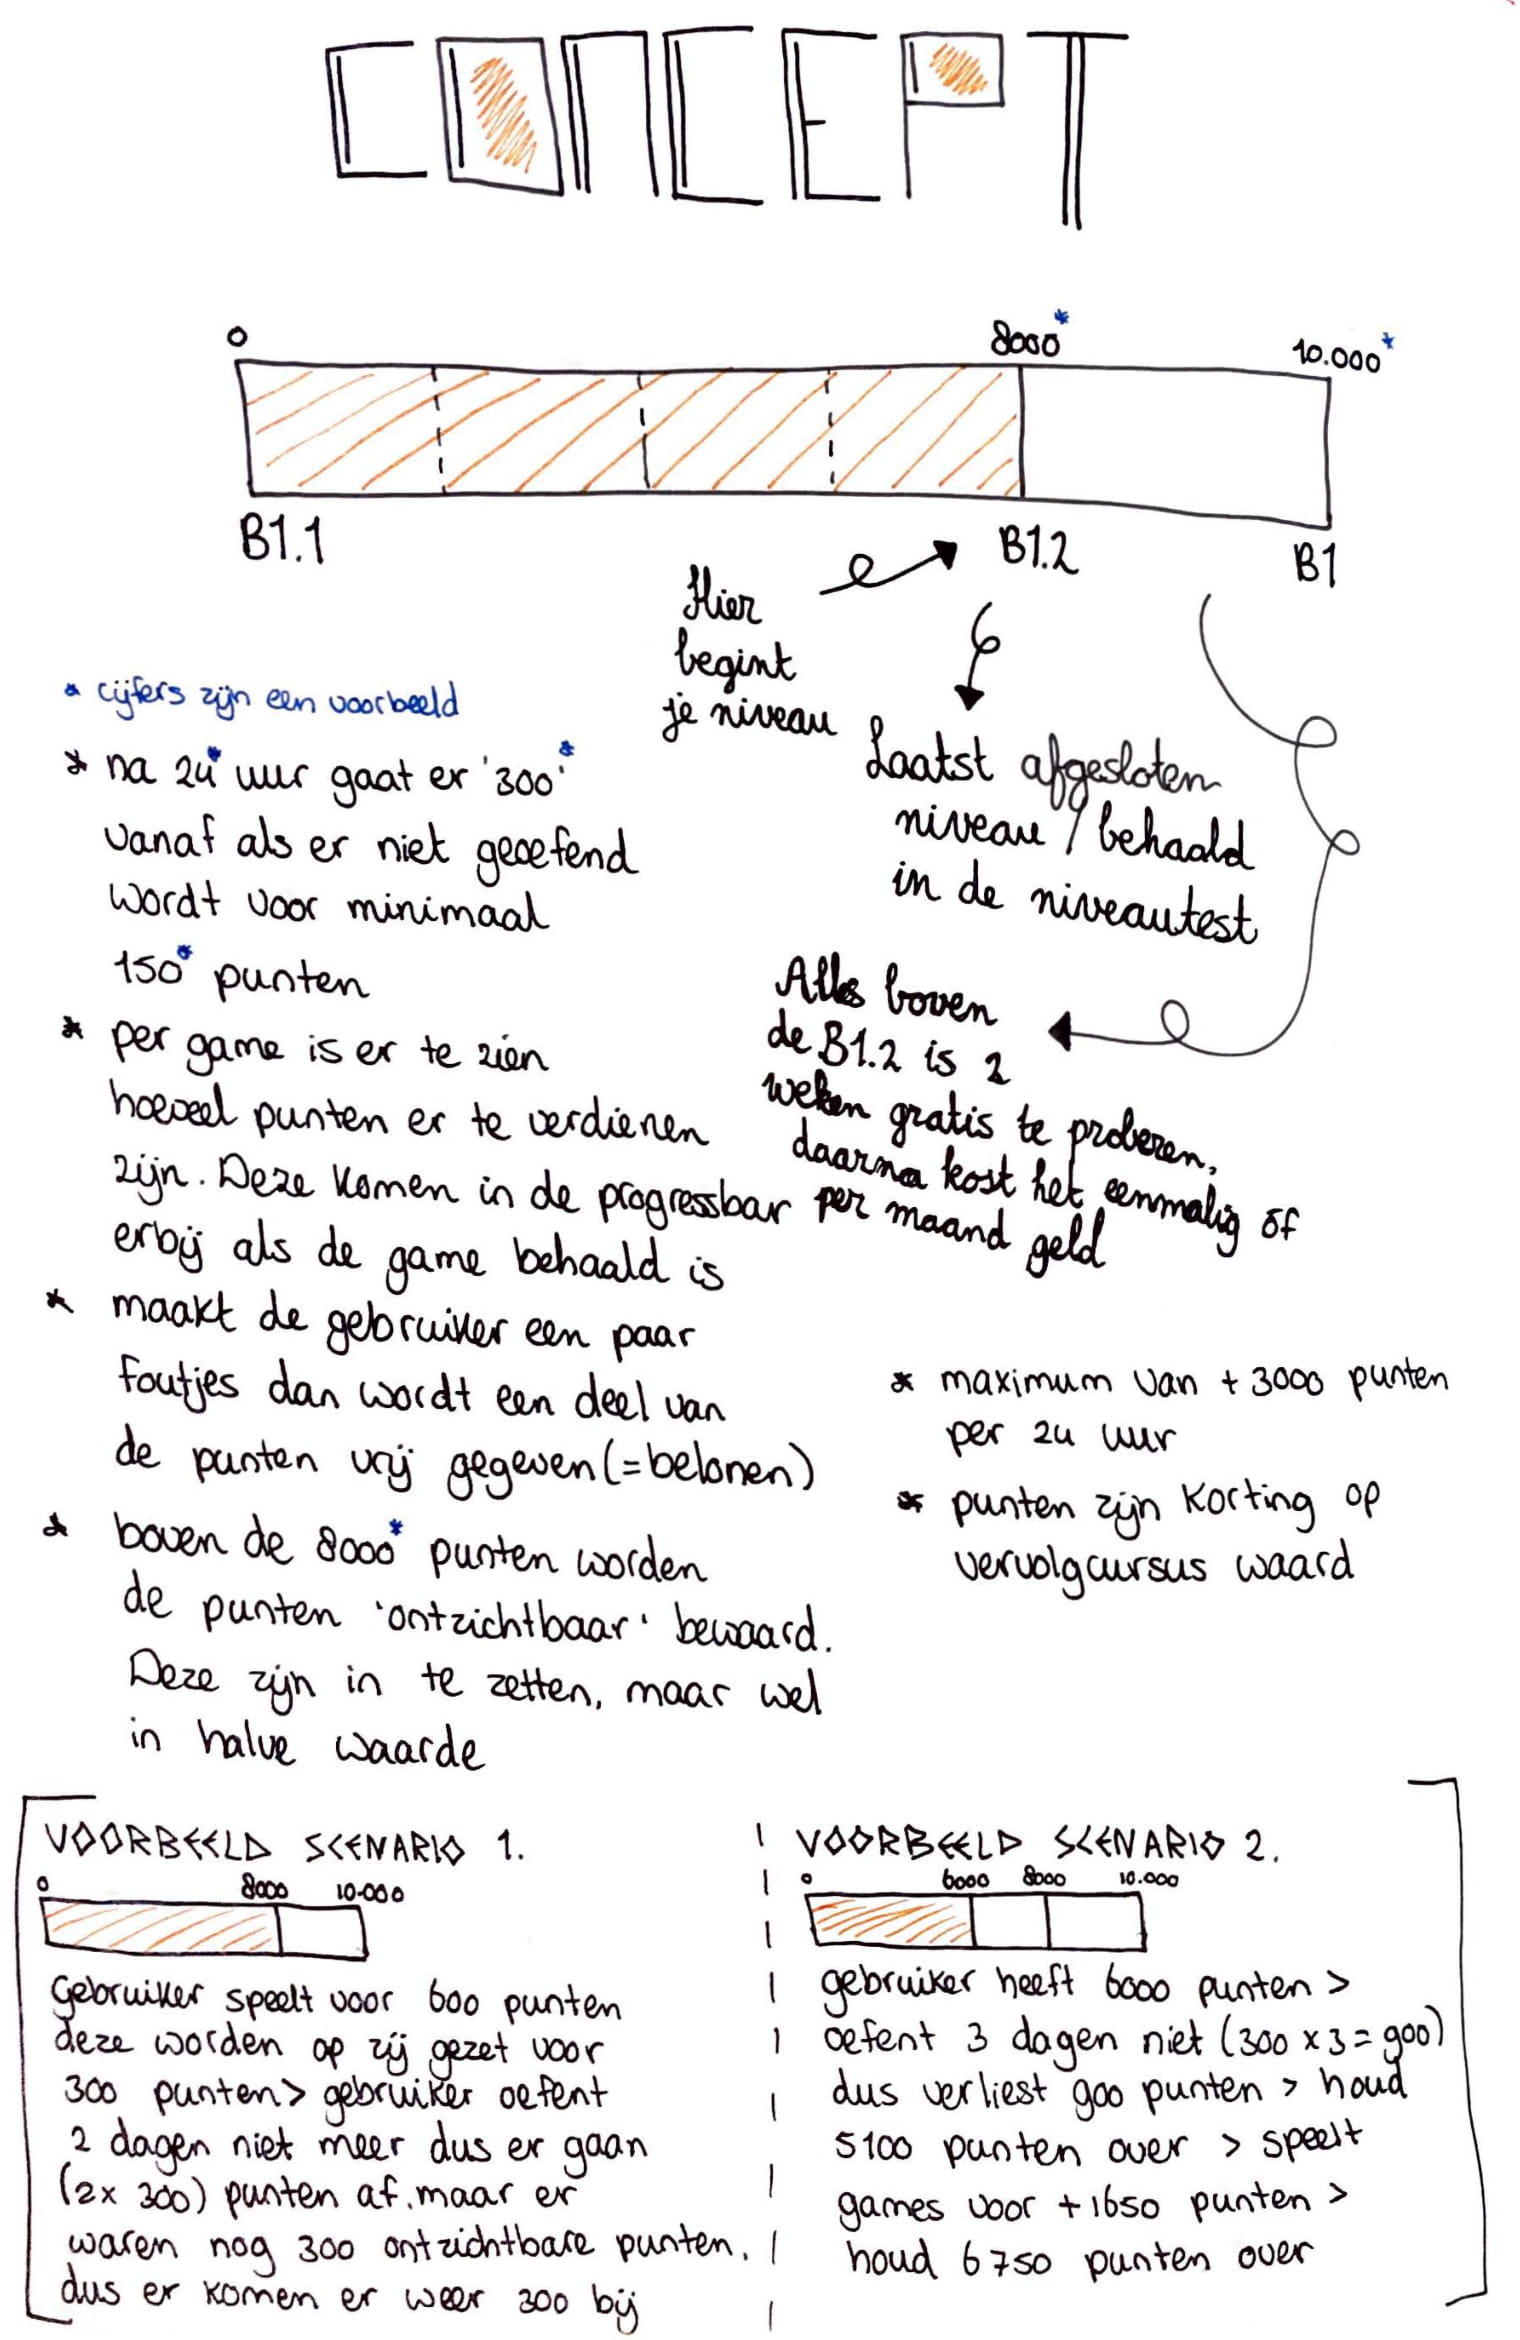 CONCEPT
0 8000* 10.000*
B1.1 B1.2 B1
Hier
begint
je niveau
Laatst afgesloten
niveau / behaald
in de niveautest
Alles boven
de B1.2 is 2
weken gratis te proberen,
daarna kost het eenmalig óf
per maand geld
* cijfers zijn een voorbeeld
* na 24* uur gaat er '300'*
vanaf als er niet geoefend
wordt voor minimaal
150* punten
* per game is er te zien
hoeveel punten er te verdienen
zijn. Deze komen in de progressbar
erbij als de game behaald is
* maakt de gebruiker een paar
foutjes dan wordt een deel van
de punten vrij gegeven (= belonen)
* boven de 8000* punten worden
de punten 'ontzichtbaar' bewaard.
Deze zijn in te zetten, maar wel
in halve waarde
* maximum van + 3000 punten
per 24 uur
* punten zijn korting op
vervolgcursus waard
VOORBEELD SCENARIO 1.
0 8000 10.000
Gebruiker speelt voor 600 punten
deze worden op zij gezet voor
300 punten > gebruiker oefent
2 dagen niet meer dus er gaan
(2x 300) punten af. maar er
waren nog 300 ontzichtbare punten.
dus er komen er weer 300 bij
VOORBEELD SCENARIO 2.
0 6000 8000 10.000
gebruiker heeft 6000 punten >
oefent 3 dagen niet (300 x 3 = 900)
dus verliest 900 punten > houd
5100 punten over > speelt
games voor + 1650 punten >
houd 6750 punten over